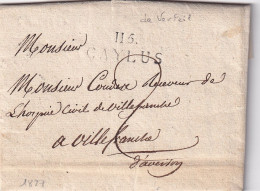 de Verfeil
Monsieur
115.
CAYLUS
Monsieur Couderc Receveur de
L'hospice Civil de Villefranche
a villefranche
d'aveyron
1827